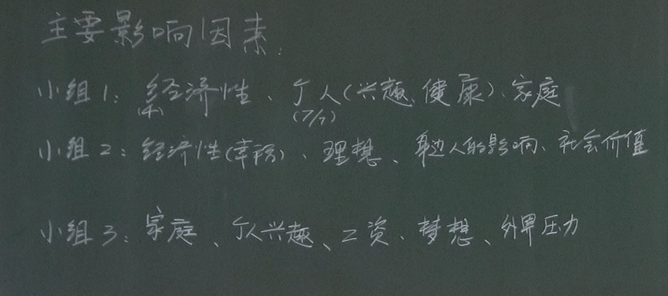 主要影响因素:
小组1: 经济性、个人(兴趣、健康)、家庭
(4) (7/9)
小组2: 经济性()、理想、身边人的影响、社会价值
小组3: 家庭、个人兴趣、工资、梦想、外界压力